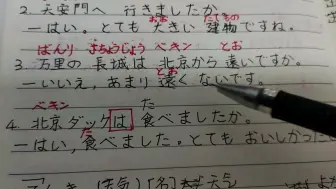 2. 天安門へ 行きましたか
おお たてもの
ーはい、とても 大きい 建物ですね。
ばんり ちょうじょう ペキン とお
3. 万里の 長城は 北京から 遠いですか。
とお
ーいいえ、あまり 遠く ないです。
ペキン た
4. 北京ダックは 食べましたか。
た
ーはい、食べました。とても おいしかった
天気